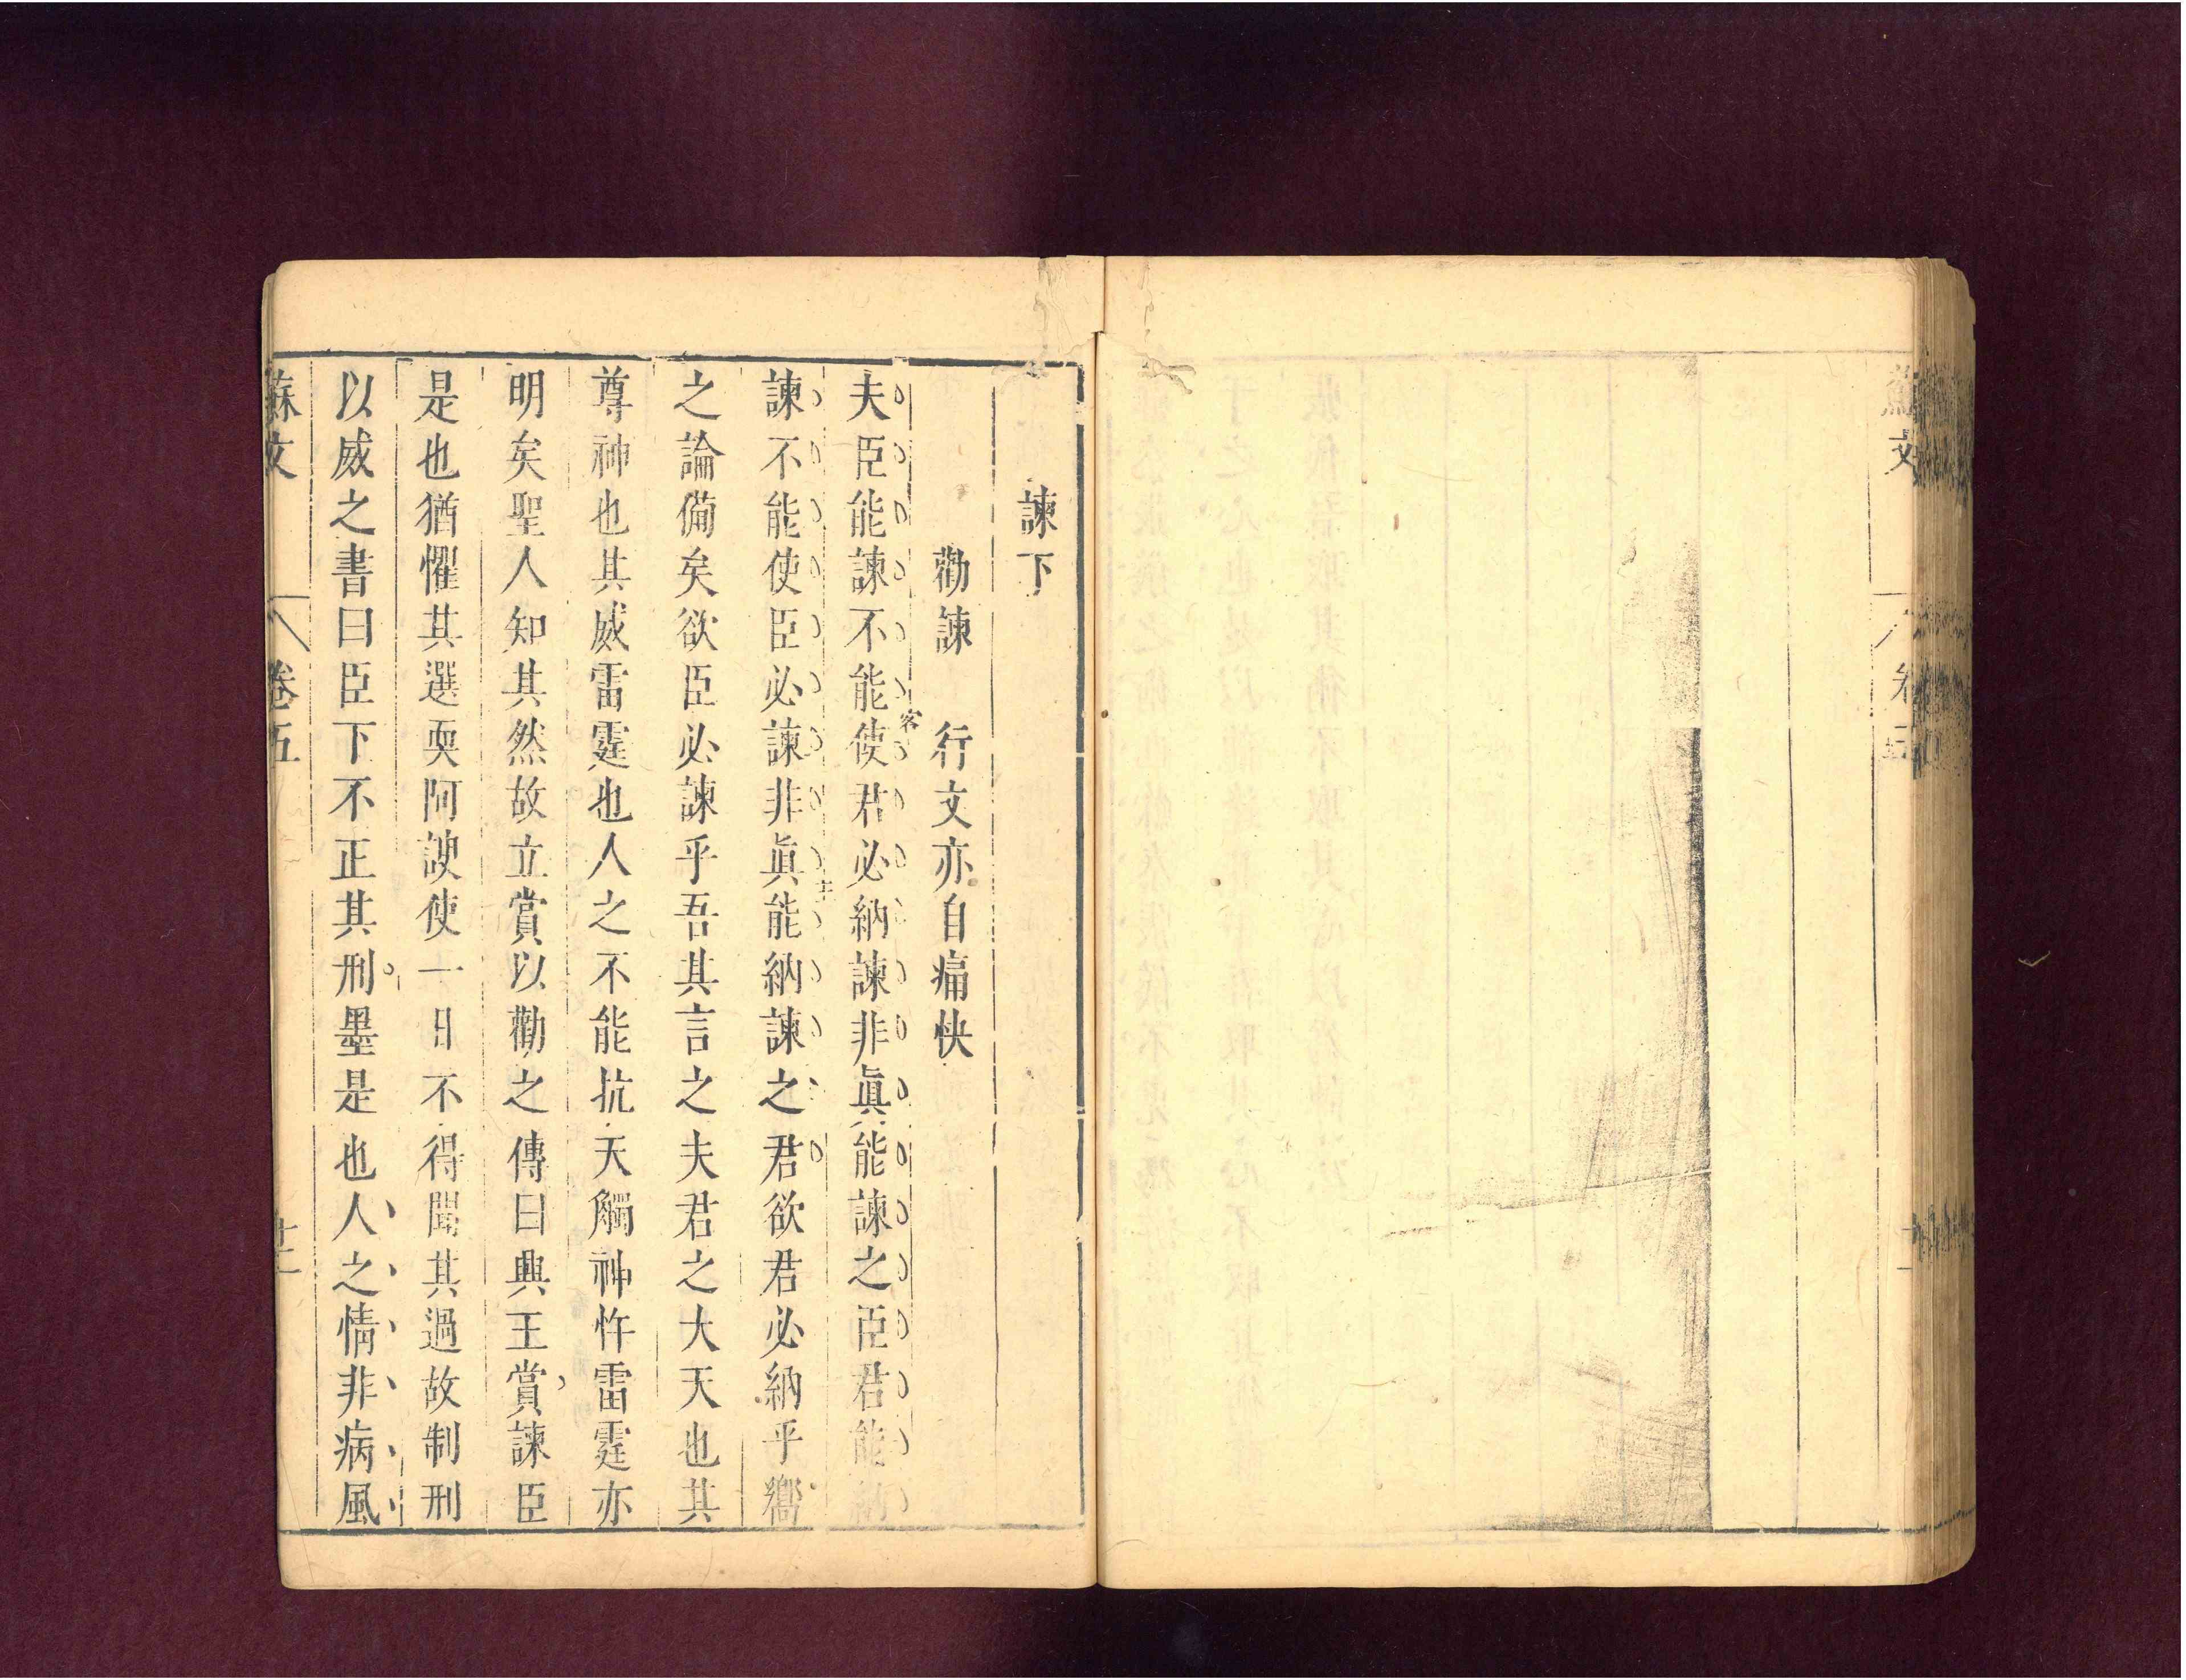 蘇文
卷五
諫下
勸諫 行文亦自痛快
夫臣能諫不能使君必納諫非眞能諫之臣君能納
客
諫不能使臣必諫非眞能納諫之君欲君必納乎嚮
主
之論備矣欲臣必諫乎吾其言之夫君之大天也其
尊神也其威雷霆也人之不能抗天觸神忤雷霆亦
明矣聖人知其然故立賞以勸之傳曰興王賞諫臣
是也猶懼其選耎阿諛使一日不得聞其過故制刑
以威之書曰臣下不正其刑墨是也人之情非病風
蘇文
卷五